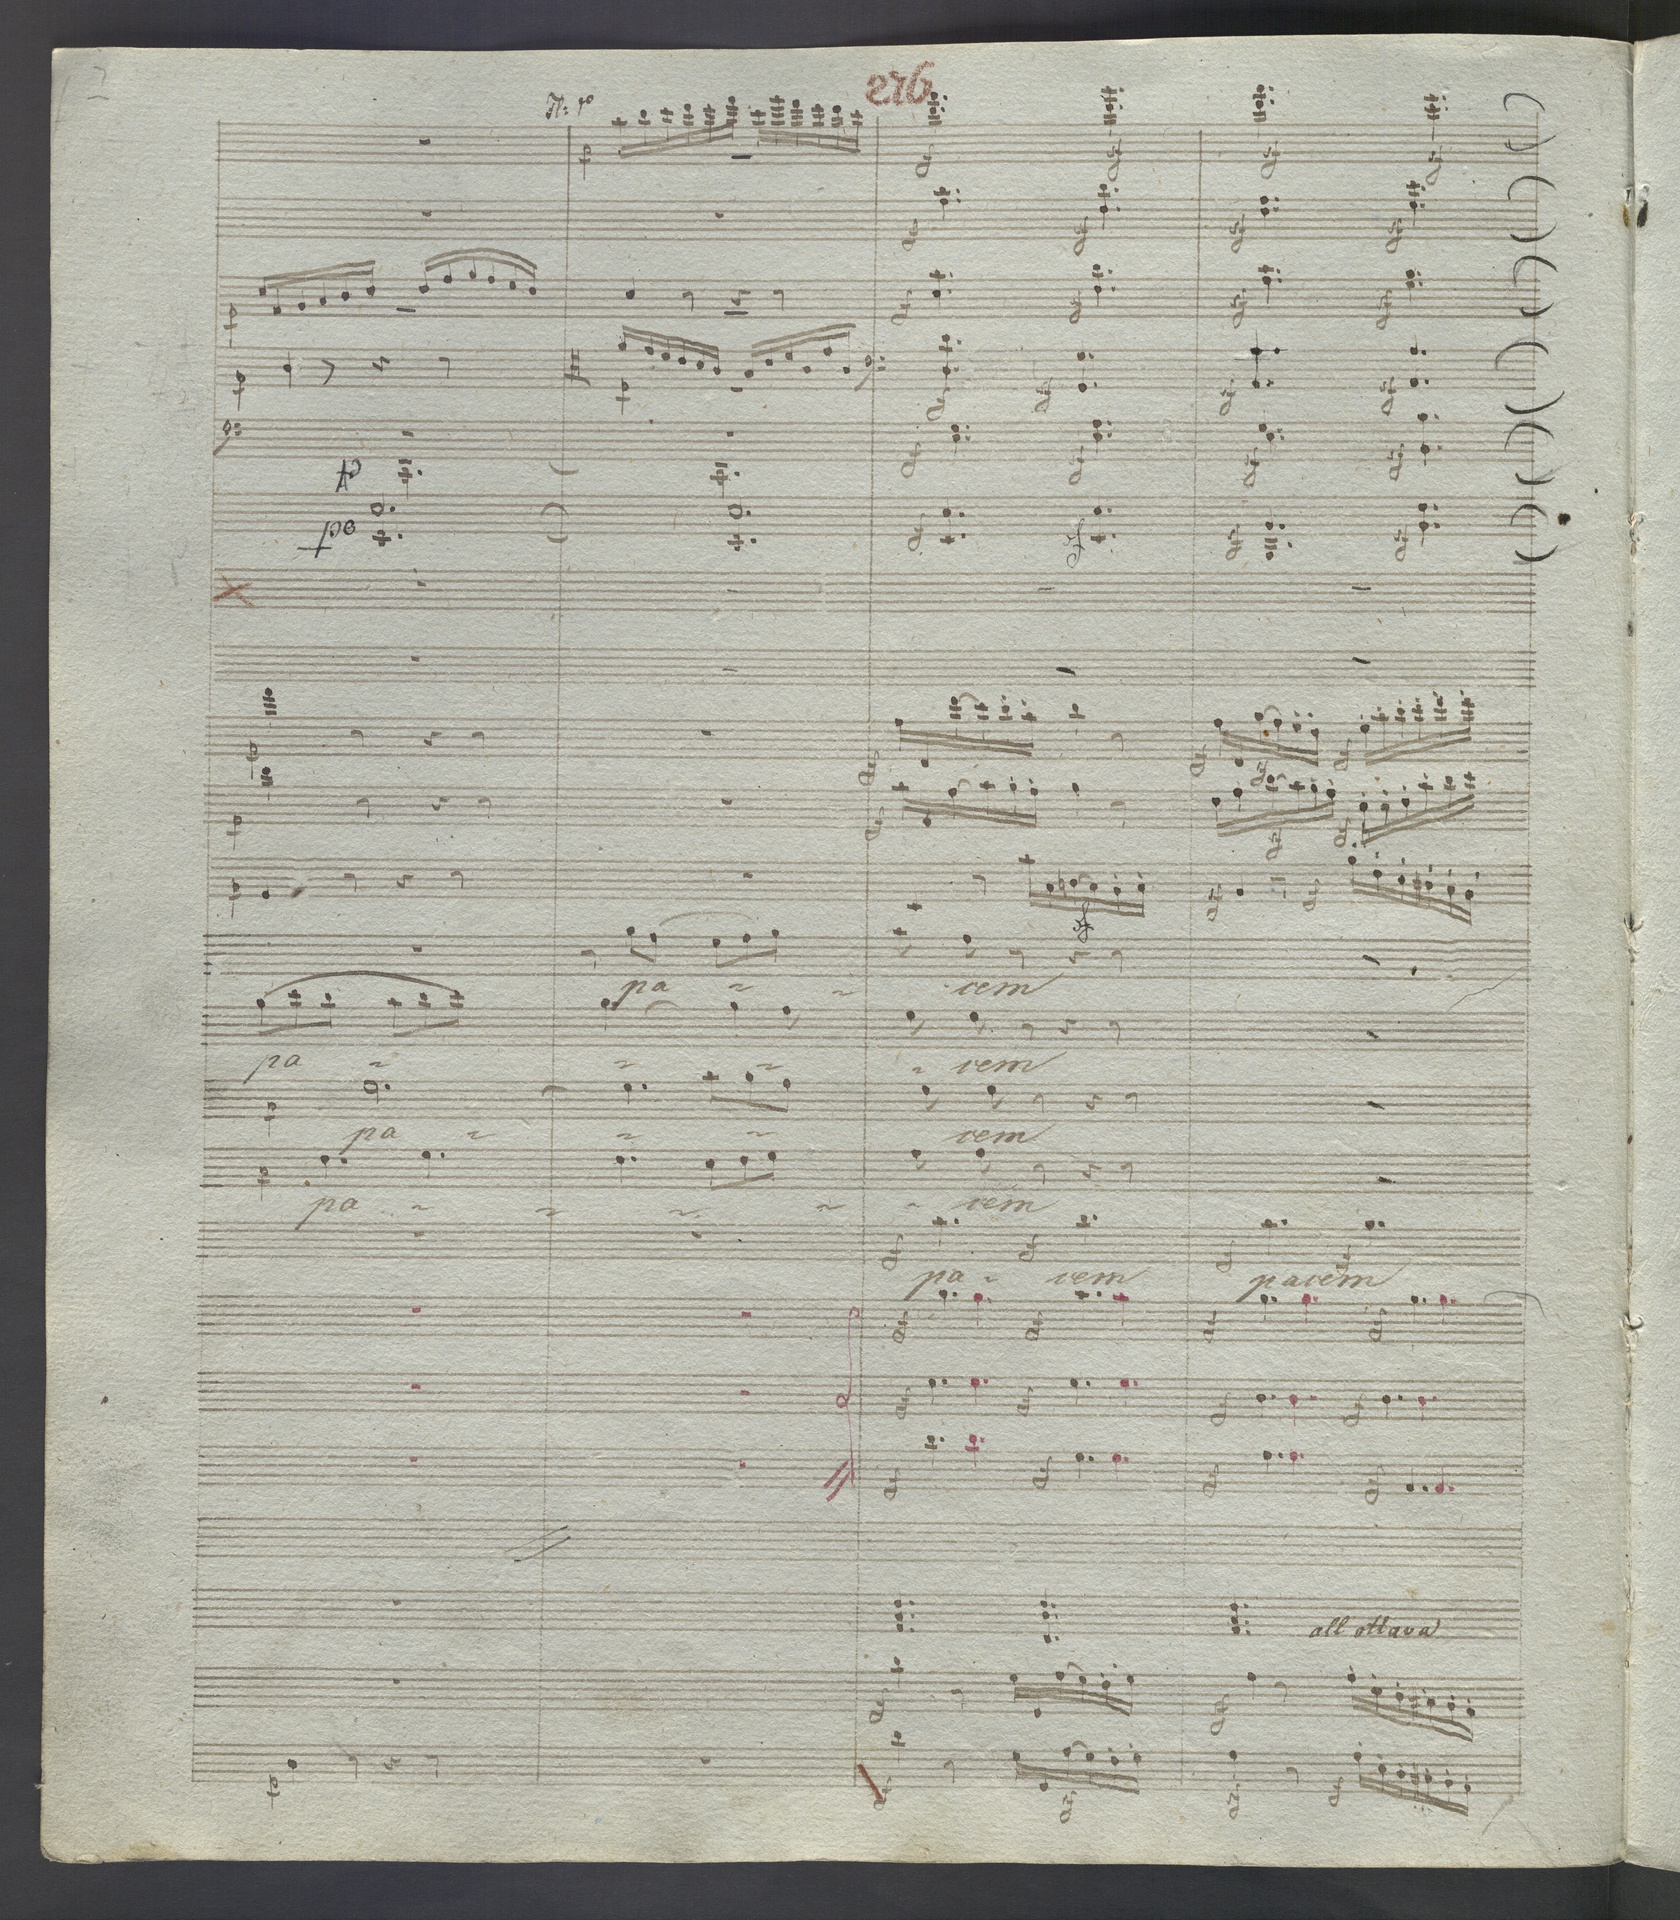 276
pa ~ ~ cem
pa ~ ~ ~ ~ cem
pa ~ ~ ~ cem
pa ~ ~ ~ ~ ~ cem
pa - cem pacem
all ottava